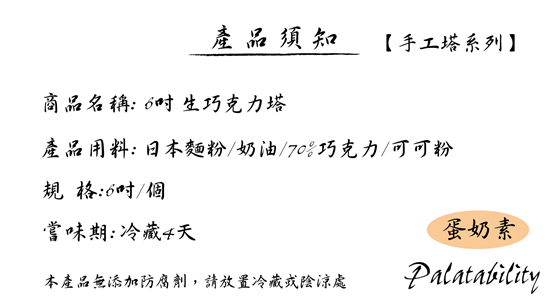 產品須知 【手工塔系列】
商品名稱: 6吋 生巧克力塔
產品用料: 日本麵粉/奶油/70%巧克力/可可粉
規 格:6吋/個
嘗味期:冷藏4天
蛋奶素
本產品無添加防腐劑，請放置冷藏或陰涼處
Palatability